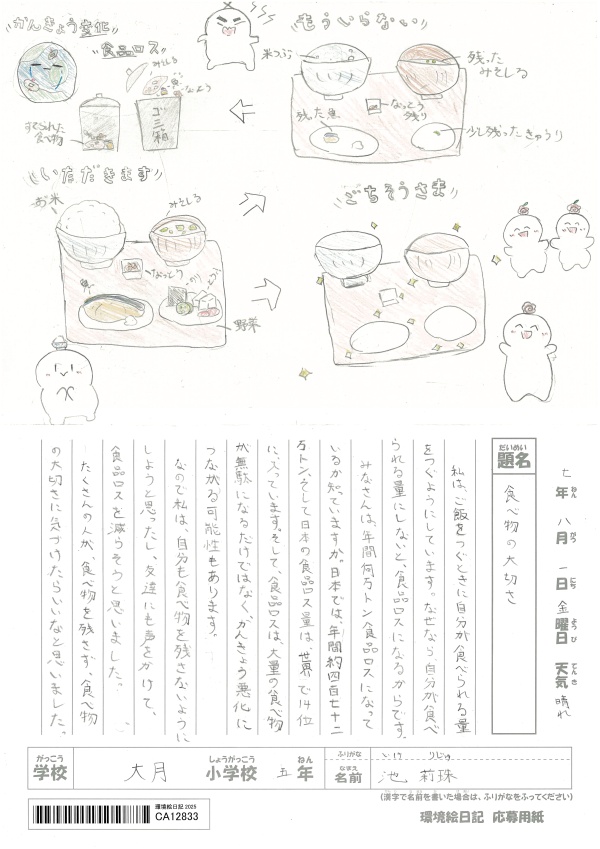 かんきょう変化
食品ロス
みそしる
魚
なっとう
ゴミ箱
すてられた食べ物
もういらない
米つぶ
残ったみそしる
なっとう残り
残した魚
少し残ったきゅうり
いただきます
お米
みそしる
なっとう
魚
のり
野菜
ごちそうさま
七年 八月 一日 金曜日 天気 晴れ
ねん がつ にち ようび てんき
だいめい
題名
食べ物の大切さ
私は、ご飯をつぐときに自分が食べられる量
をつぐようにしています。なぜなら、自分が食べ
られる量にしないと、食品ロスになるからです。
みなさんは、年間何万トン食品ロスになって
いるか知っていますか。日本では、年間約四百七十二
万トン、そして日本の食品ロス量は、世界で14位
に入っています。そして、食品ロスは、大量の食べ物
が無駄になるだけではなく、かんきょう悪化に
つながる可能性もあります。
なので私は、自分も食べ物を残さないように
しようと思ったし、友達にも声をかけて、
食品ロスを減らそうと思いました。
たくさんの人が、食べ物を残さず、食べ物
の大切さに気づけたらいいなと思いました。
がっこう しょうがっこう ねん ふりがな いけ りじゅ
学校 大月 小学校 五年 なまえ 名前 池 莉珠
(漢字で名前を書いた場合は、ふりがなをふってください)
環境絵日記 2025
CA12833
環境絵日記 応募用紙